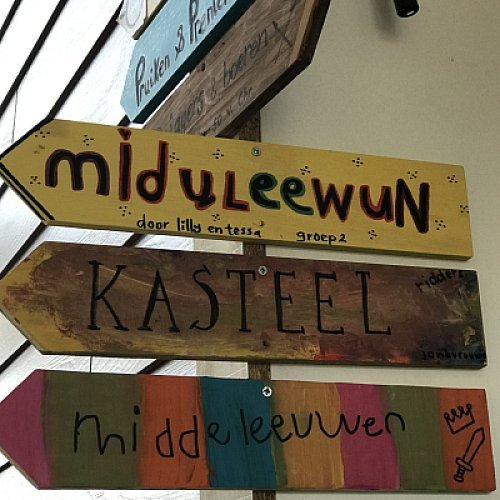 Pruiken & Prenten
jagers & boeren
miduleewun
door lilly en tessa groep 2
ridders
KASTEEL
jonkvrouw
middeleeuwen